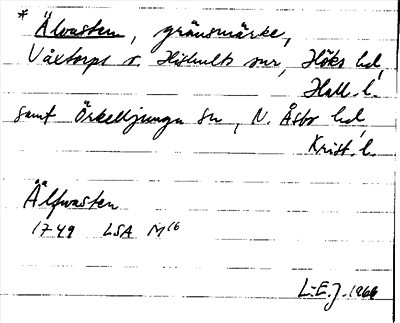 * Älvasten, gränsmärke,
Våxtorps o. Hishults snr, Höks hd,
Hall. l.
samt Örkelljunga sn, N. Åsbo hd
Krist. l.
Älfwasten
1749 LSA M16
L-E. J. 1966